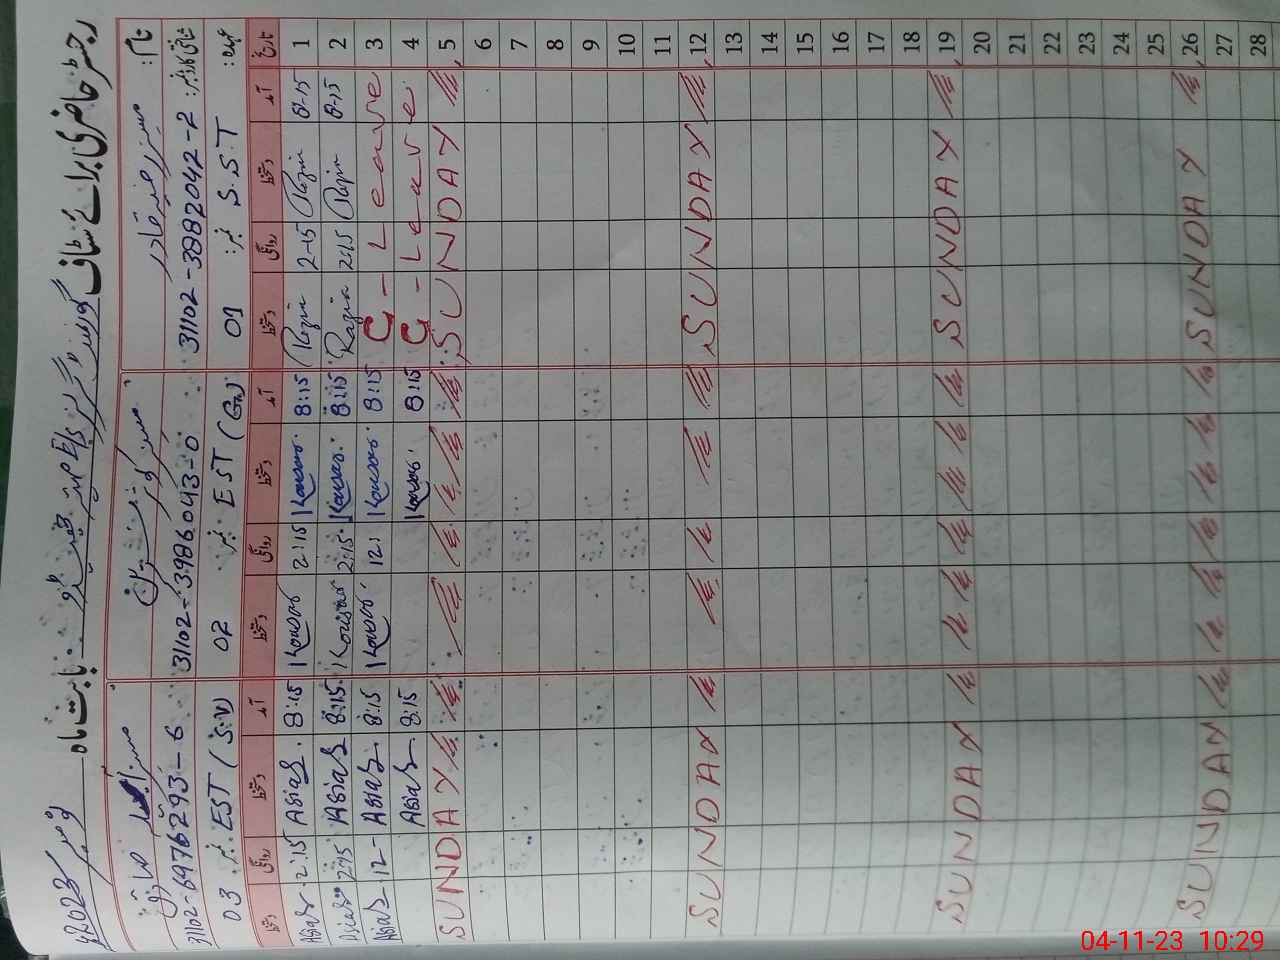 رجسٹر حاضری برائے سٹاف گورنمنٹ گرلز بابت ماہ نومبر 2023ء
نام : مسز رضیہ قادر مسز کوثر پروین مسز آسیہ صادق
شناختی کارڈ نمبر: 31102-3882042-2 31102-3986043-0 31102-6976293-6
عہدہ : S.S.T نمبر : 01 EST (Gn) نمبر 02 EST (S.V) نمبر 03
تاریخ آمد دستخط روانگی دستخط آمد دستخط روانگی دستخط آمد دستخط روانگی دستخط
1 8-15 Razia 2-15 Razia 8:15 Kousar. 2:15 Kousar 8:15 Asia S. 2:15 Asia S
2 8-15 Razia 2:15 Razia 8:15 Kousar. 2:15. Kousar 8:15. Asia S 2:15 Asia S
3 C - Leave 8:15 Kousar. 12: Kousar. 8:15 Asia S 12- Asia S
4 C - Leave 8:15 Kousar. 8:15 Asia S.
5 SUNDAY SUNDAY
6
7
8
9
10
11
12 SUNDAY SUNDAY
13
14
15
16
17
18
19 SUNDAY SUNDAY
20
21
22
23
24
25
26 SUNDAY SUNDAY
27
28
04-11-23 10:29